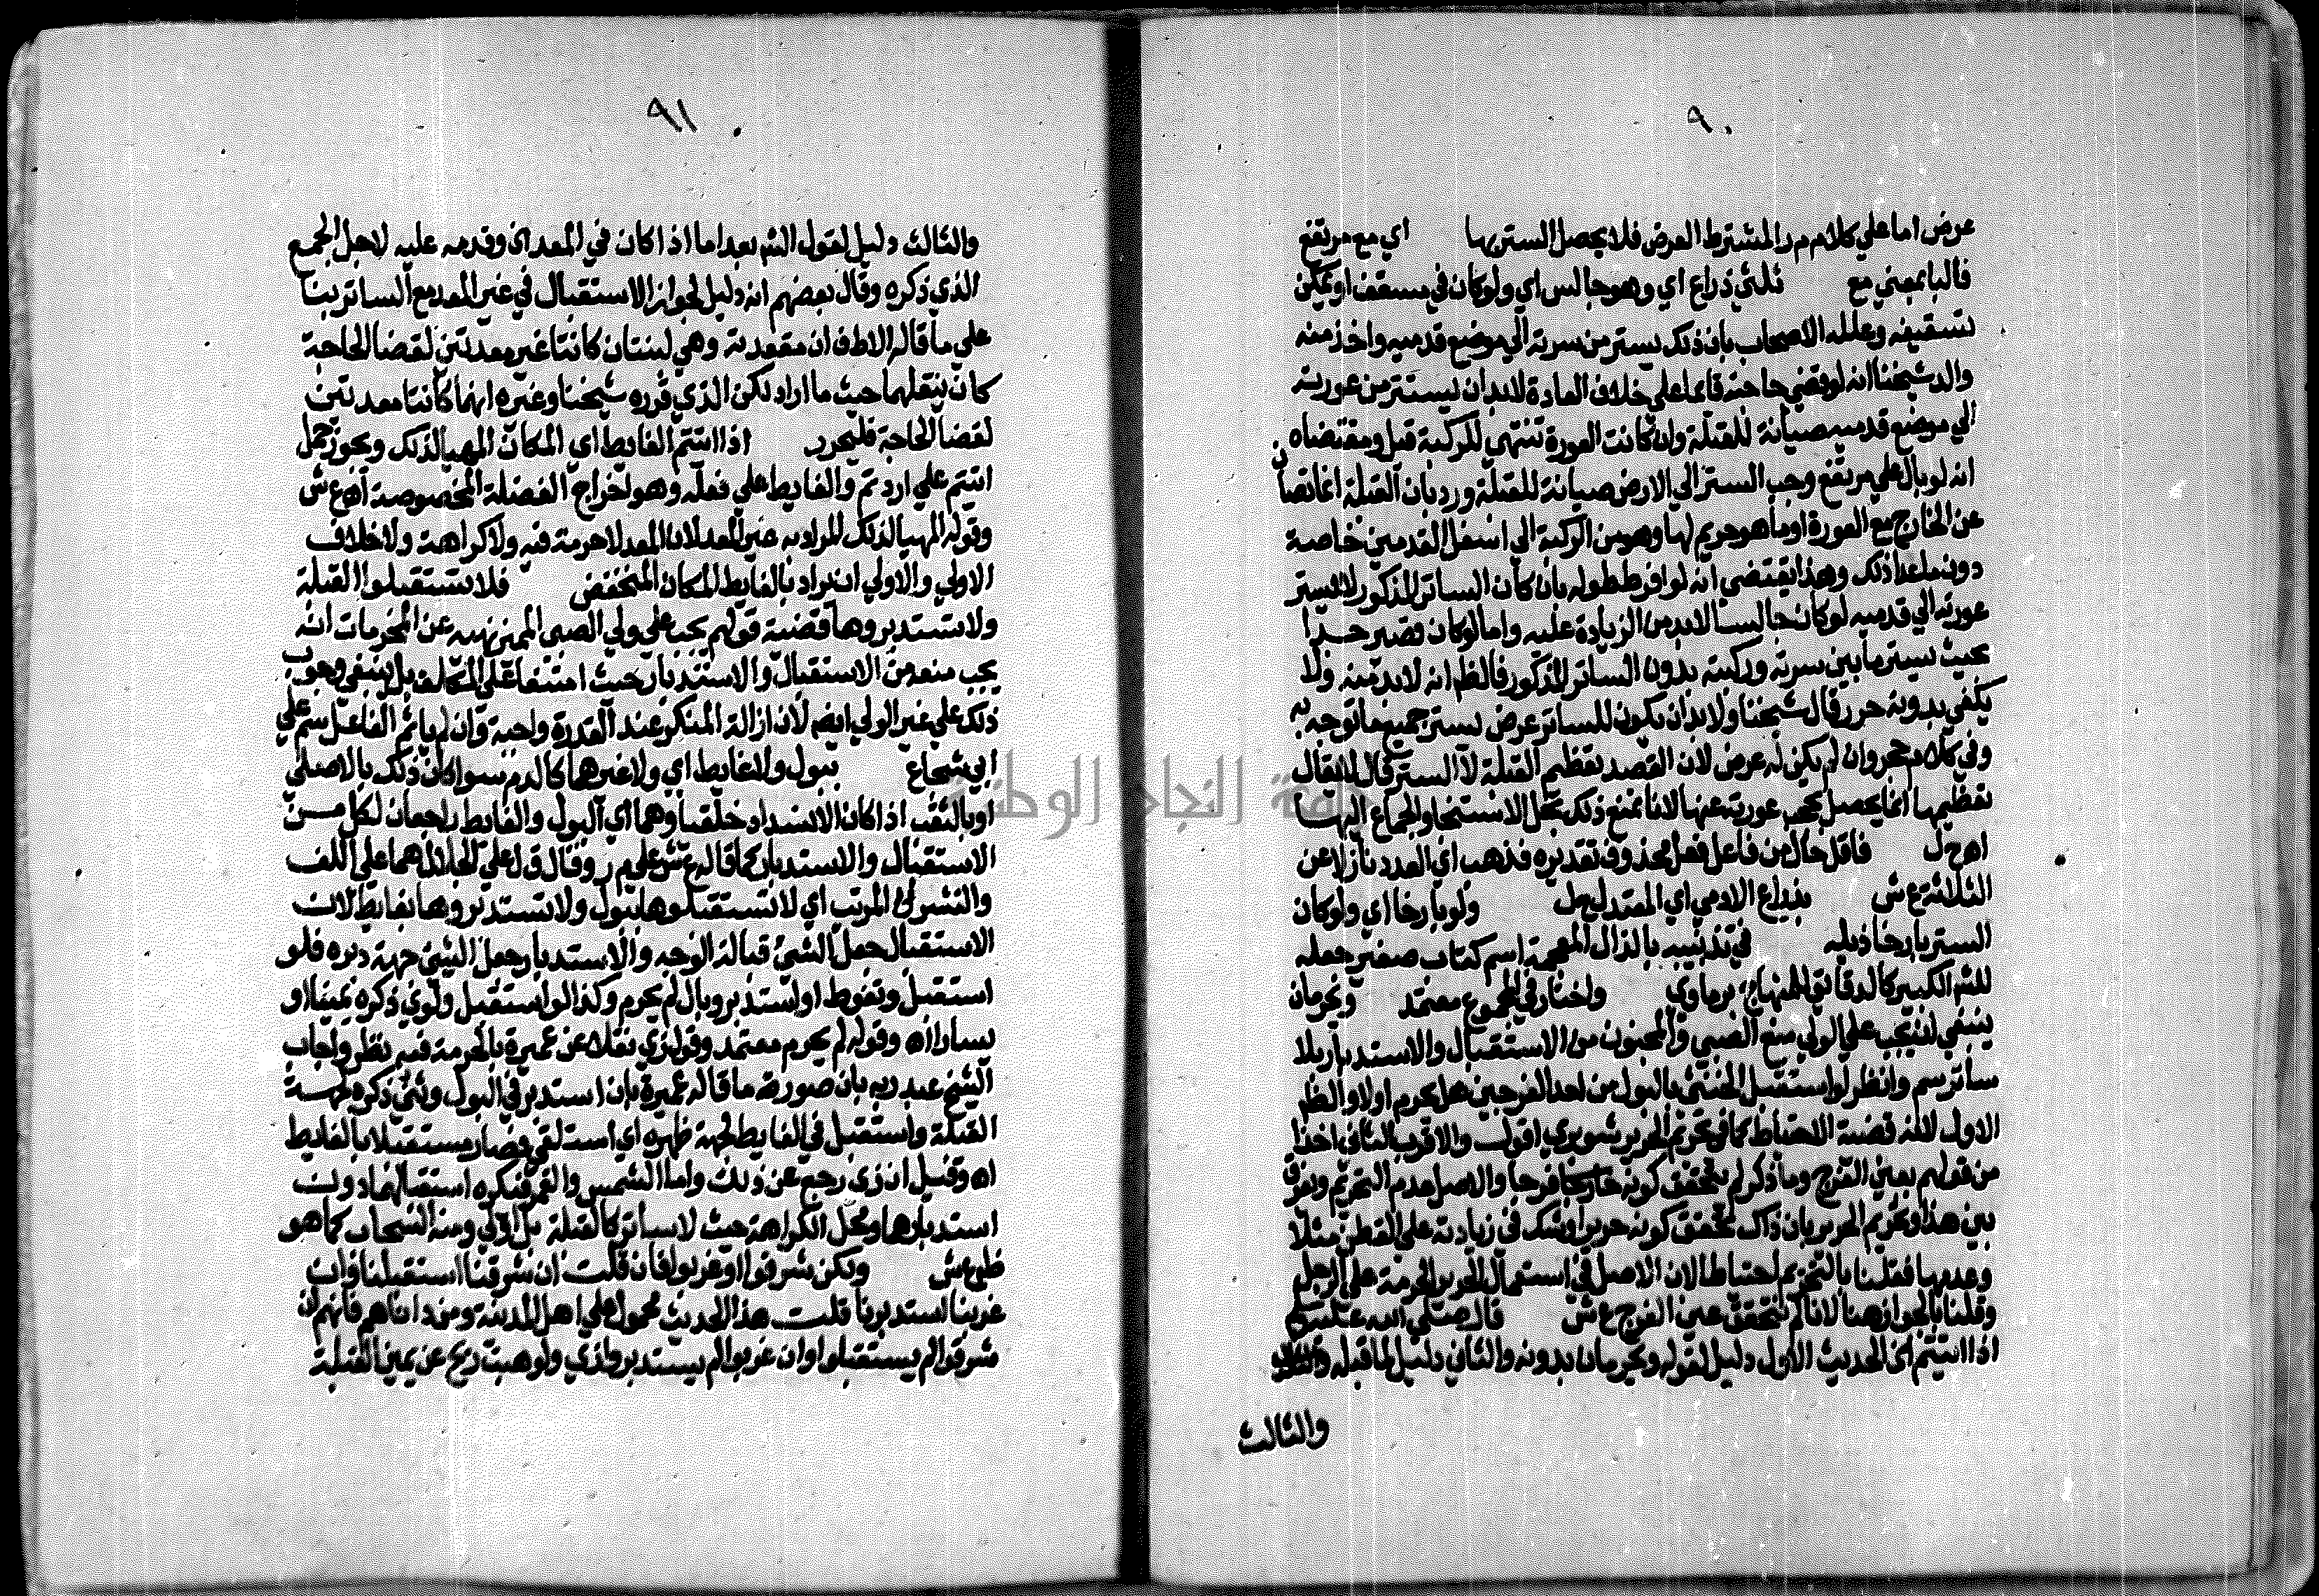 ٩٠
عرض اما علي كلام م ر المشترط العرض فلا يحصل الستر بها اي مع مرتفع
فالبا بمعني مع ثلثي ذراع اي وهو جالس اي ولو كان في مسقف او يمكن
تسقيفه وعلله الاصحاب بان ذلك يستر من سرته الي موضع قدميه واخذ منه
والد شيخنا انه لو قضي حاجته قايما علي خلاف العادة لا بد ان يستتر من عورته
الي موضع قدميه صيانة للقبلة وان كانت العورة تنتهي للركبة قيل ومقتضاه
انه لو بال علي مرتفع وجب الستر الي الارض صيانة للقبلة ورد بان القبلة انما تصان
عن الخارج مع العورة او ما هو حريم لها وهو من الركبة الي اسفل القدمين خاصة
دون ما عدا ذلك وهذا يقتضي انه لو افرط طوله بان كان الساتر المذكور لا يستر
عورته الي قدميه لو كان جالسا لا بد من الزيادة عليه واما لو كان قصير جدا
بحيث يستر ما بين سرته وركبته بدون الساتر المذكور فالظ انه لا بد منه ولا
يكفي بدونه حرر قال شيخنا ولا بد ان يكون للساتر عرض يستر جميع ما توجه به
وفي كلام حجر وان لم يكن له عرض لان القصد تعظيم القبلة لا الستر قال لا يقال
تعظيمها انما يحصل بحجب عورته عنها لانا نمنع ذلك بحل الاستنجا والجماع اليها
اه ح ل فاقل حال من فاعل فعل محذوف تقديره فذهب اي العدد نازلا عن
الثلاثة ع ش بذراع الادمي اي المعتدل ح ل ولو بارخا اي ولو كان
الستر بارخا ذيله في تذنيبه بالذال المعجمة اسم كتاب صغير جعله
للشر الكبير كالدقايق للمنهاج برماوي واختار في المجموع معتمد ويحرمان
ينبغي ان يجب علي الولي منع الصبي والمجنون من الاستقبال والاستدبار بلا
ساتر سم وانظر لو استقبل الخنثي بالبول من احد الفرجين هل يحرم او لا والظ
الاول لانه قضية الاحتياط كما في تحريم الحرير شوبري اقول والاقرب الثاني اخذا
من قولهم بعين الفرج وما ذكر لم يتحقق كونه فرجا والاصل عدم التحريم ويفرق
بين هذا وتحريم الحرير بان ذاك تحقق كونه حريرا وشك في زيادته علي القطن مثلا
وعدمها فقلنا بالتحريم احتياطا لان الاصل في استعمال الحرير الحرمة علي الرجل
وقلنا بالجواز هنا لانا لم نتحقق عين الفرج ع ش قال صلي الله عليه
اذا اتيتم اي الحديث الاول دليل لقوله ويحرمان بدونه والثاني دليل لما قبله
والثالث
٩١
والثالث دليل لقول الشر بعد اما اذا كان في المعد اي وقدمه عليه لاجل الجمع
الذي ذكره وقال بعضهم انه دليل لجواز الاستقبال في غير المعد مع الساتر بنا
علي ما قاله الاطف ان مقعدته وهي لبنتان كانتا غير معدتين لقضا الحاجة
كان ينقلهما حيث ما اراد لكن الذي قرره شيخنا وغيره انهما كانتا معدتين
لقضا الحاجة فليحرر اذا اتيتم الغايط اي المكان المهيا لذلك ويجوز حمل
اتيتم علي اردتم والغايط علي فعله وهو اخراج الفضلة المخصوصة اه ع ش
وقوله المهيا لذلك المراد به غير المعد لان المعد لا حرمة فيه ولا كراهة ولا خلاف
الاولي والاولي ان يراد بالغايط المكان المنخفض فلا تستقبلوا القبلة
ولا تستدبروها قضية قولهم يجب علي ولي الصبي المميز نهيه عن المحرمات انه
يجب منعه من الاستقبال والاستدبار حيث امتنعا علي المكلف بل ينبغي وجوب
ذلك علي غير الولي ايضا لان ازالة المنكر عند القدرة واجبة وان لم ياثم الفاعل سم علي
ابي شجاع ببول ولا غايط اي ولا غيرها كالدم سوا كان ذلك بالاصلي
او بالثقب اذا كان الانسداد خلقيا وهما اي البول والغايط راجعان لكل من
الاستقبال والاستدبار كما قاله ع ش علي م ر وقال ق ل علي الجلال هما علي اللف
والنشر المرتب اي لا تستقبلوها ببول ولا تستدبروها بغايط لان
الاستقبال جعل الشئ قبالة الوجه والاستدبار جعل الشئ جهة دبره فلو
استقبل وتغوط او استدبر وبال لم يحرم وكذا لو استقبل ولوي ذكره يمينا او
يسارا اه وقوله لم يحرم معتمد وقول زي نقلا عن عميرة بالحرمة فيه نظر واجاب
الشيخ عبد ربه بان صورة ما قاله عميرة بان استدبر في البول وثني ذكره لجهة
القبلة واستقبل في الغايط لجهة ظهره اي استلقي فصار مستقبلا بالغايط
اه وقيل ان زي رجع عن ذلك واما الشمس والقمر فيكره استقبالهما دون
استدبارها ومحل الكراهة حيث لا ساتر كالقبلة بل اولي ومنه السحاب كما هو
ظ ع ش ولكن شرقوا او غربوا فان قلت ان شرقنا استقبلنا وان
غربنا استدبرنا قلت هذا الحديث محمول علي اهل المدينة ومن داناهم فانهم ان
شرقوا لم يستقبلوا وان غربوا لم يستدبروا زي ولو هبت ريح عن يمين القبلة